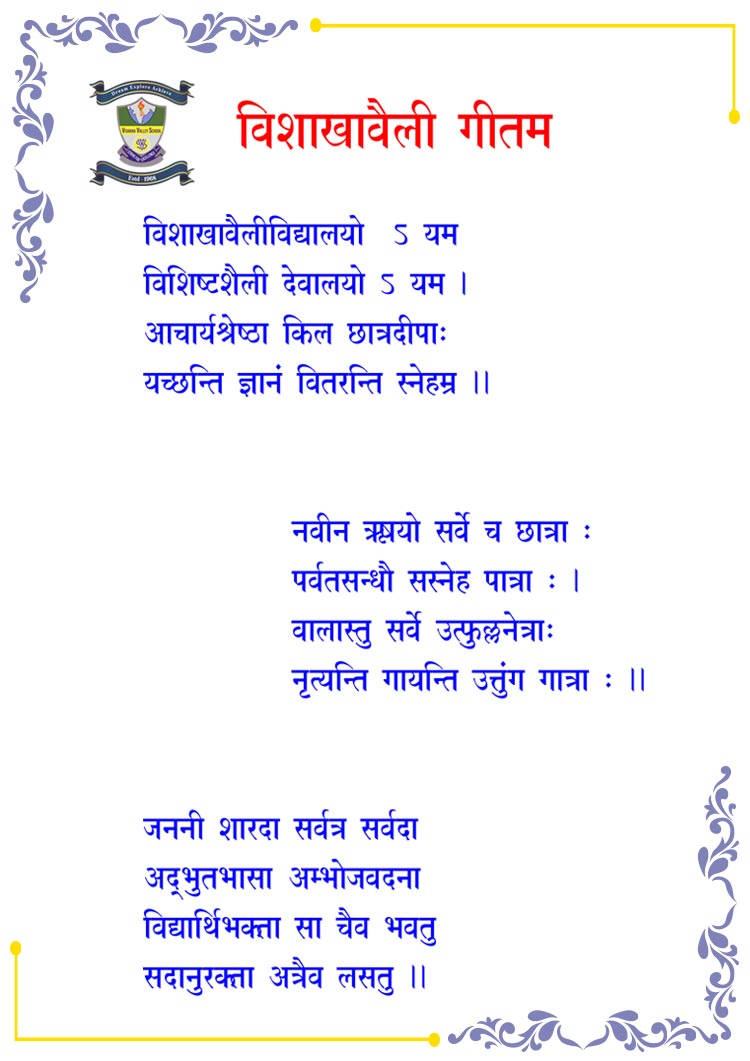 Dream Explore Achieve
VISAKHA VALLEY SCHOOL
Estd - 1968
विशाखावैली गीतम
विशाखावैलीविद्यालयो ऽ यम
विशिष्टशैली देवालयो ऽ यम ।
आचार्यश्रेष्ठा किल छात्रदीपाः
यच्छन्ति ज्ञानं वितरन्ति स्नेहम्र ।।
नवीन ऋषयो सर्वे च छात्रा ः
पर्वतसन्धौ सस्नेह पात्रा ः ।
वालास्तु सर्वे उत्फुल्लनेत्राः
नृत्यन्ति गायन्ति उत्तुंग गात्रा ः ।।
जननी शारदा सर्वत्र सर्वदा
अद्भुतभासा अम्भोजवदना
विद्यार्थिभक्ता सा चैव भवतु
सदानुरक्ता अत्रैव लसतु ।।